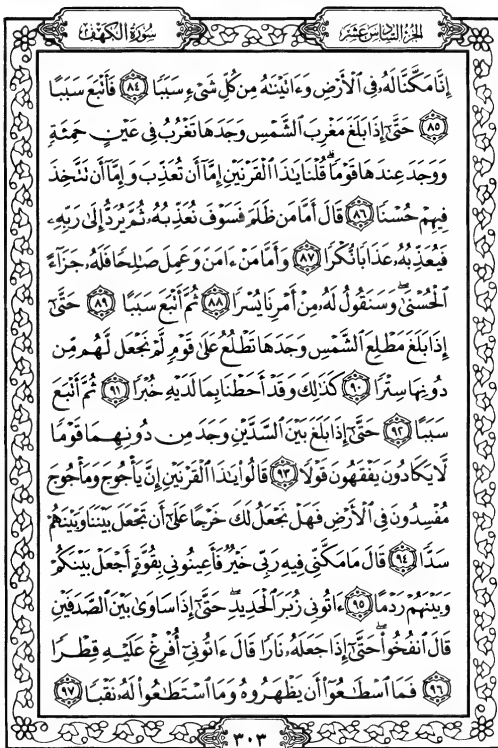 سُورَةُ الكَهْفِ الجُزْءُ السَّادِسُ عَشَرَ
إِنَّا مَكَّنَّا لَهُۥ فِى ٱلْأَرْضِ وَءَاتَيْنَٰهُ مِن كُلِّ شَىْءٍ سَبَبًا ٨٤ فَأَتْبَعَ سَبَبًا
٨٥ حَتَّىٰٓ إِذَا بَلَغَ مَغْرِبَ ٱلشَّمْسِ وَجَدَهَا تَغْرُبُ فِى عَيْنٍ حَمِئَةٍ
وَوَجَدَ عِندَهَا قَوْمًا ۗ قُلْنَا يَٰذَا ٱلْقَرْنَيْنِ إِمَّآ أَن تُعَذِّبَ وَإِمَّآ أَن تَتَّخِذَ
فِيهِمْ حُسْنًا ٨٦ قَالَ أَمَّا مَن ظَلَمَ فَسَوْفَ نُعَذِّبُهُۥ ثُمَّ يُرَدُّ إِلَىٰ رَبِّهِۦ
فَيُعَذِّبُهُۥ عَذَابًا نُّكْرًا ٨٧ وَأَمَّا مَنْ ءَامَنَ وَعَمِلَ صَٰلِحًا فَلَهُۥ جَزَآءً
ٱلْحُسْنَىٰ ۖ وَسَنَقُولُ لَهُۥ مِنْ أَمْرِنَا يُسْرًا ٨٨ ثُمَّ أَتْبَعَ سَبَبًا ٨٩ حَتَّىٰٓ
إِذَا بَلَغَ مَطْلِعَ ٱلشَّمْسِ وَجَدَهَا تَطْلُعُ عَلَىٰ قَوْمٍ لَّمْ نَجْعَل لَّهُم مِّن
دُونِهَا سِتْرًا ٩٠ كَذَٰلِكَ وَقَدْ أَحَطْنَا بِمَا لَدَيْهِ خُبْرًا ٩١ ثُمَّ أَتْبَعَ
سَبَبًا ٩٢ حَتَّىٰٓ إِذَا بَلَغَ بَيْنَ ٱلسَّدَّيْنِ وَجَدَ مِن دُونِهِمَا قَوْمًا
لَّا يَكَادُونَ يَفْقَهُونَ قَوْلًا ٩٣ قَالُوا۟ يَٰذَا ٱلْقَرْنَيْنِ إِنَّ يَأْجُوجَ وَمَأْجُوجَ
مُفْسِدُونَ فِى ٱلْأَرْضِ فَهَلْ نَجْعَلُ لَكَ خَرْجًا عَلَىٰٓ أَن تَجْعَلَ بَيْنَنَا وَبَيْنَهُمْ
سَدًّا ٩٤ قَالَ مَا مَكَّنِّى فِيهِ رَبِّى خَيْرٌ فَأَعِينُونِى بِقُوَّةٍ أَجْعَلْ بَيْنَكُمْ
وَبَيْنَهُمْ رَدْمًا ٩٥ ءَاتُونِى زُبَرَ ٱلْحَدِيدِ ۖ حَتَّىٰٓ إِذَا سَاوَىٰ بَيْنَ ٱلصَّدَفَيْنِ
قَالَ ٱنفُخُوا۟ ۖ حَتَّىٰٓ إِذَا جَعَلَهُۥ نَارًا قَالَ ءَاتُونِىٓ أُفْرِغْ عَلَيْهِ قِطْرًا
٩٦ فَمَا ٱسْطَٰعُوٓا۟ أَن يَظْهَرُوهُ وَمَا ٱسْتَطَٰعُوا۟ لَهُۥ نَقْبًا ٩٧
٣٠٣